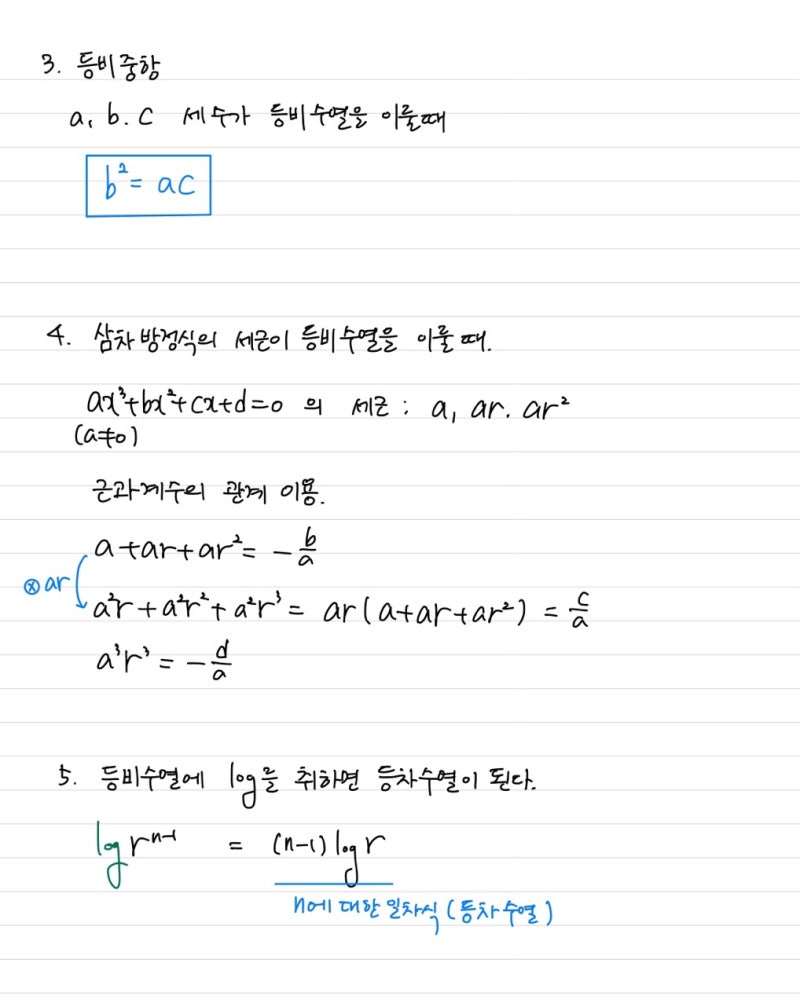 3. 등비중항
a, b. c 세수가 등비수열을 이룰때
b² = ac
4. 삼차방정식의 세근이 등비수열을 이룰 때.
ax³+bx²+cx+d=0 의 세근 : a, ar. ar²
(a≠0)
근과계수의 관계 이용.
a+ar+ar² = -b/a
⊗ar
a²r + a²r² + a²r³ = ar(a+ar+ar²) = c/a
a³r³ = -d/a
5. 등비수열에 log를 취하면 등차수열이 된다.
log rⁿ⁻¹ = (n-1) log r
n에 대한 일차식 (등차수열)